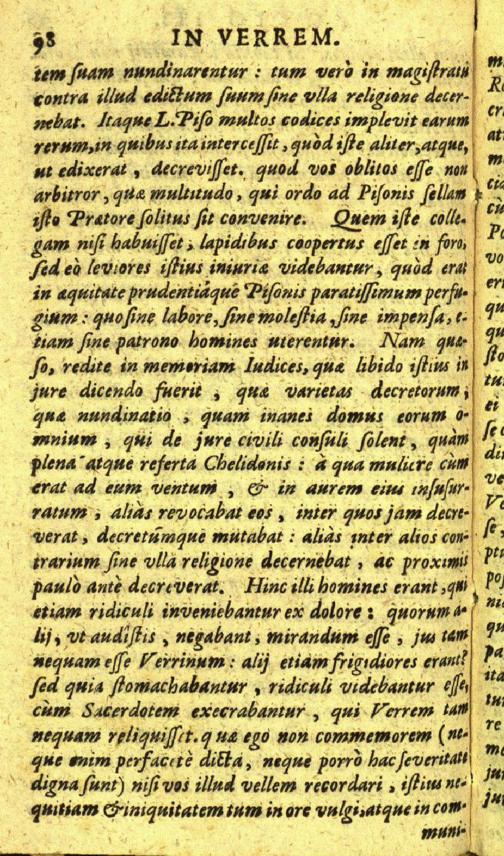 98 IN VERREM.
tem suam nundinarentur : tum verò in magistratu
contra illud edictum suum sine vlla religione decer-
nebat. Itaque L. Piso multos codices implevit earum
rerum, in quibus ita intercessit, quòd iste aliter, atque,
ut edixerat, decrevisset. quod vos oblitos esse non
arbitror, quæ multitudo, qui ordo ad Pisonis sellam
isto Prætore solitus sit convenire. Quem iste colle-
gam nisi habuisset, lapidibus coopertus esset in foro,
sed eò leviores istius iniuriæ videbantur, quòd erat
in æquitate prudentiáque Pisonis paratissimum perfu-
gium : quo sine labore, sine molestia, sine impensa, e-
tiam sine patrono homines uterentur. Nam quæ-
so, redite in memoriam Iudices, quæ libido istius in
jure dicendo fuerit, quæ varietas decretorum,
quæ nundinatio, quam inanes domus eorum o-
mnium, qui de jure civili consuli solent, quàm
plena atque referta Chelidonis : à qua muliere cùm
erat ad eum ventum, & in aurem eius insusur-
ratum, aliàs revocabat eos, inter quos jam decre-
verat, decretúmque mutabat : aliàs inter alios con-
trarium sine vllâ religione decernebat, ac proximis
paulò antè decreverat. Hinc illi homines erant, qui
etiam ridiculi inveniebantur ex dolore : quorum a-
lij, vt audistis, negabant, mirandum esse, jus tam
nequam esse Verrinum : alij etiam frigidiores erant:
sed quia stomachabantur, ridiculi videbantur esse,
cùm Sacerdotem execrabantur, qui Verrem tam
nequam reliquisset. quæ ego non commemorem (ne-
que enim perfacetè dicta, neque porrò hac severitate
digna sunt) nisi vos illud vellem recordari, istius ne-
quitiam & iniquitatem tum in ore vulgi, atque in com-
muni-